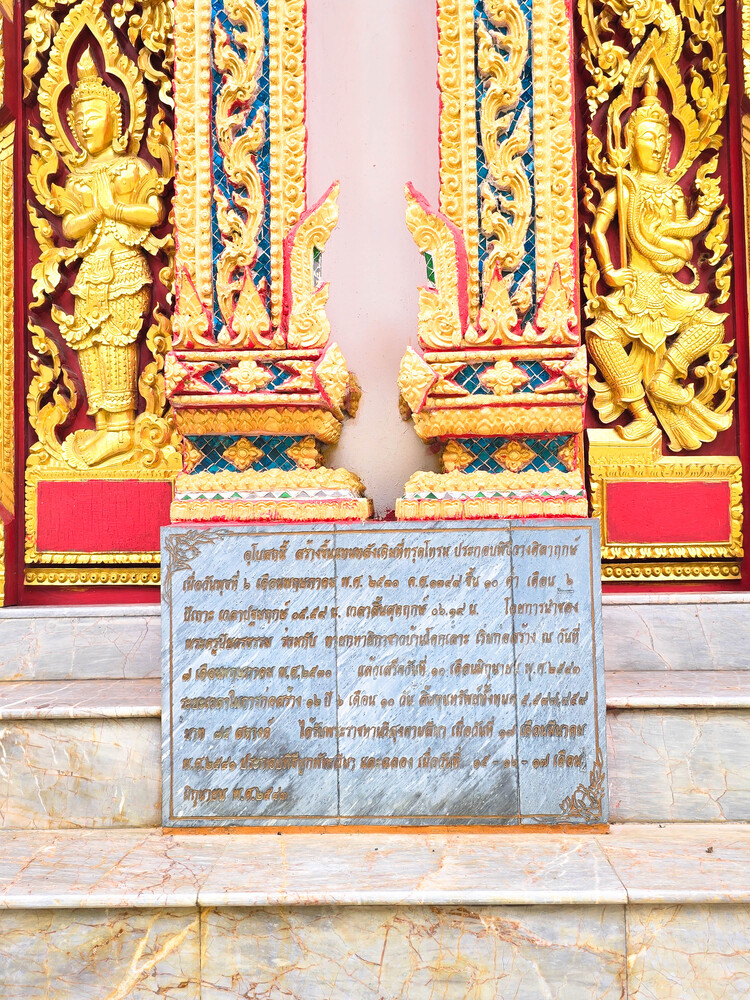 อุโบสถนี้ สร้างขึ้นแทนหลังเดิมที่ทรุดโทรม ประกอบพิธีวางศิลาฤกษ์
เมื่อวันพุธที่ ๖ เดือนพฤษภาคม พ.ศ. ๒๕๓๐ ขึ้น ๑๐ ค่ำ เดือน ๖
ปีเถาะ เวลาปฐมฤกษ์ ๐๕.๕๙ น. เวลาสิ้นสุดฤกษ์ ๐๖.๑๙ น. โดยการนำของ
ร่วมกับ เริ่มก่อสร้าง ณ วันที่
๗ เดือนพฤษภาคม พ.ศ.๒๕๓๐ แล้วเสร็จวันที่ ๑๐ เดือนมิถุนายน พ.ศ.๒๕๔๓
ระยะเวลาในการก่อสร้าง ๑๒ ปี ๖ เดือน ๑๐ วัน สิ้นเงินทรัพย์ทั้งหมด
บาท ๗๕ สตางค์ ได้รับพระราชทานวิสุงคามสีมา เมื่อวันที่ ๑๗ เดือนมีนาคม
พ.ศ.๒๕๔๑ ประกอบพิธีผูกพัทธสีมา และฉลอง เมื่อวันที่ ๑๕ - ๑๖ - ๑๗ เดือน
มิถุนายน